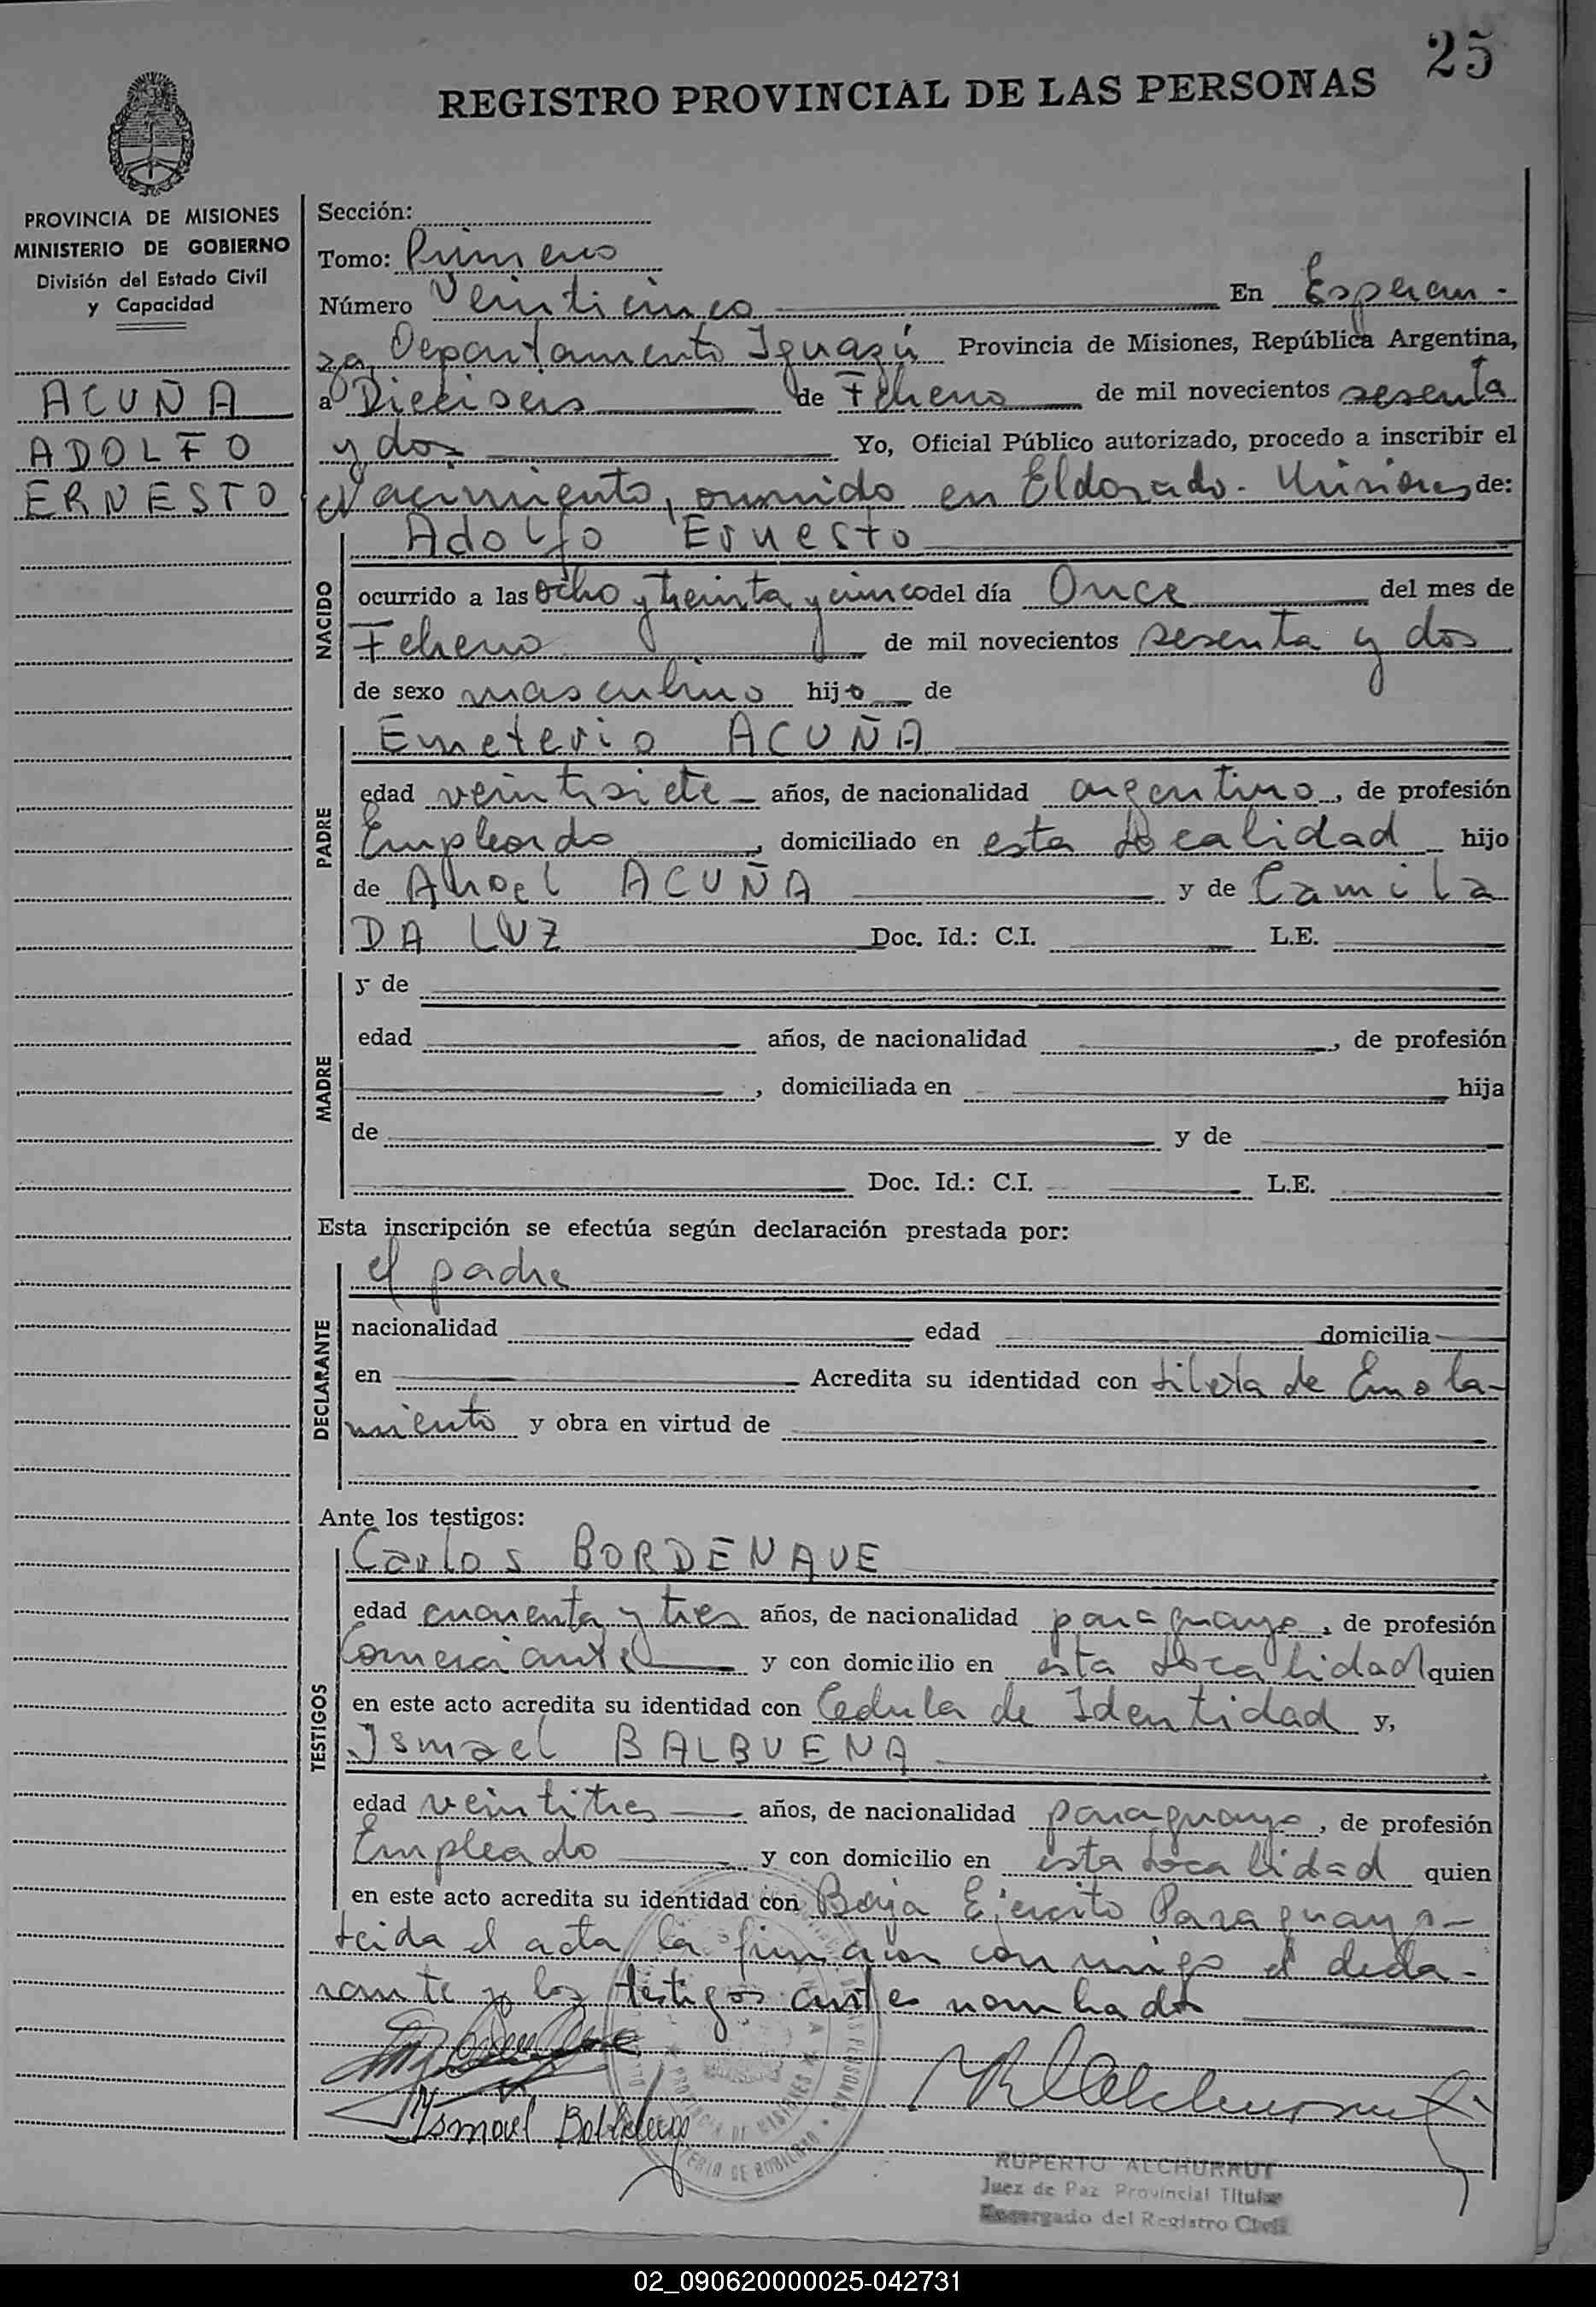 25
REGISTRO PROVINCIAL DE LAS PERSONAS
PROVINCIA DE MISIONES
MINISTERIO DE GOBIERNO
División del Estado Civil
y Capacidad
ACUÑA
ADOLFO
ERNESTO
Sección:
Tomo: Primero
Número Veinticinco En Esperan-
za, Departamento Iguazú Provincia de Misiones, República Argentina,
a Dieciseis de Febrero de mil novecientos sesenta
y dos Yo, Oficial Público autorizado, procedo a inscribir el
Nacimiento, ocurrido en Eldorado - Misiones de:
NACIDO
Adolfo Ernesto
ocurrido a las ocho y treinta y cinco del día Once del mes de
Febrero de mil novecientos sesenta y dos
de sexo masculino hijo de
PADRE
Emeterio ACUÑA
edad veintisiete años, de nacionalidad argentino, de profesión
Empleado, domiciliado en esta localidad hijo
de ACUÑA y de Camila
DA LUZ Doc. Id.: C.I. L.E.
MADRE
y de
edad años, de nacionalidad , de profesión
, domiciliada en hija
de y de
Doc. Id.: C.I. L.E.
Esta inscripción se efectúa según declaración prestada por:
DECLARANTE
el padre
nacionalidad edad domicilia
en Acredita su identidad con libreta de Enrola-
miento y obra en virtud de
Ante los testigos:
TESTIGOS
Carlos BORDENAVE
edad cuarenta y tres años, de nacionalidad paraguayo, de profesión
Comerciante y con domicilio en esta localidad quien
en este acto acredita su identidad con Cedula de Identidad y,
Ismael BALBUENA
edad veintitres años, de nacionalidad paraguayo, de profesión
Empleado y con domicilio en esta localidad quien
en este acto acredita su identidad con Baja Ejercito Paraguayo-
Leida el acta la firman conmigo el decla-
rante y los testigos antes nombrados
Ismael
RUPERTO ALCHURRUT
Juez de Paz Provincial Titular
Encargado del Registro Civil
02_090620000025-042731